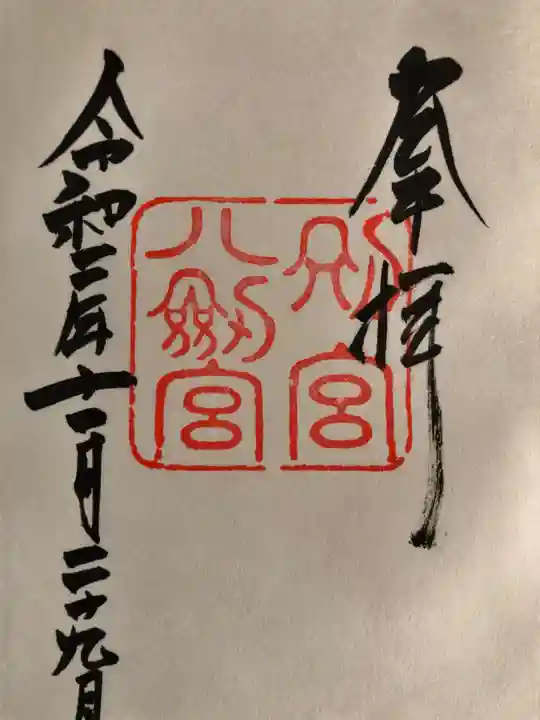 奉拝
別宮
八剱宮
令和二年十一月二十九日